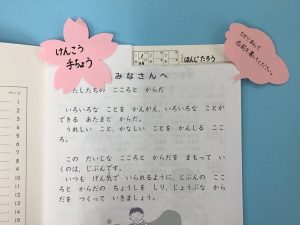 けんこう
手ちょう
ほんじ たろう
名前を書いてください。
みなさんへ
たしたちの こころと からだ
いろいろな ことを かんがえ、いろいろな ことが
できる あたまと からだ。
うれしい こと、かなしい ことを かんじる ここ
ろ。
この だいじな こころと からだを まもって い
くのは、じぶんです。
いつも げん気で いられるように、じぶんの ここ
ろと からだの ちょうしを しり、じょうぶな から
だを つくって いきましょう。
ページ
1
2
3
4
5
6
7
8
9
10
11
12
13
14
15